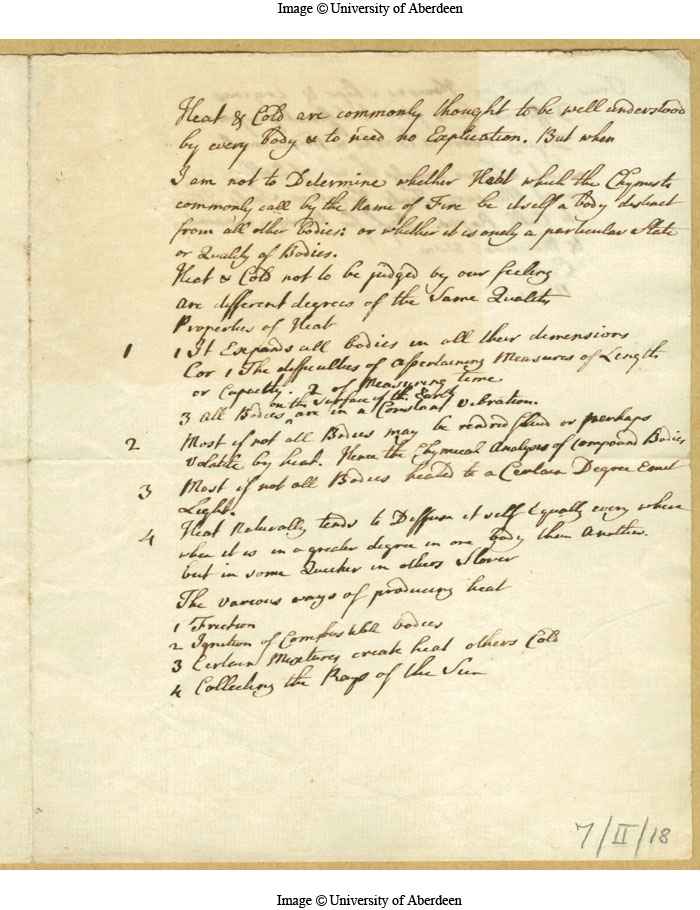 Image © University of Aberdeen
Heat & Cold are commonly thought to be well understood
by every body & to need no Explication. But when
I am not to Determine whether Heat which the Chymists
commonly call by the Name of Fire be itself a body distinct
from all other bodies: or whether it is onely a particular State
or Quality of Bodies.
Heat & Cold not to be judged by our feeling
are different degrees of the Same Quality
Properties of Heat
1 1 It Expands all bodies in all their dimensions
Cor 1 The difficulties of Assertaining Measures of Length
or Capacity. 2 of Measuring time
on the Surface of the Earth
3 All Bodies are in a Constant vibration.
2 Most if not all Bodies may be rendred fluid or perhaps
volatile by heat. Hence the Chymical Analyses of Compound Bodies
3 Most if not all Bodies heated to a Certain Degree Emit
Light.
4 Heat Naturally tends to Diffuse it self Equally every where
when it is in a greater degree in one body than Another.
but in some Quicker in others Slower
The various ways of producing heat
1 Friction
2 Ignition of Combustible bodies
3 Certain Mixtures create heat others Cold
4 Collecting the Rays of the Sun
7/II/18
Image © University of Aberdeen